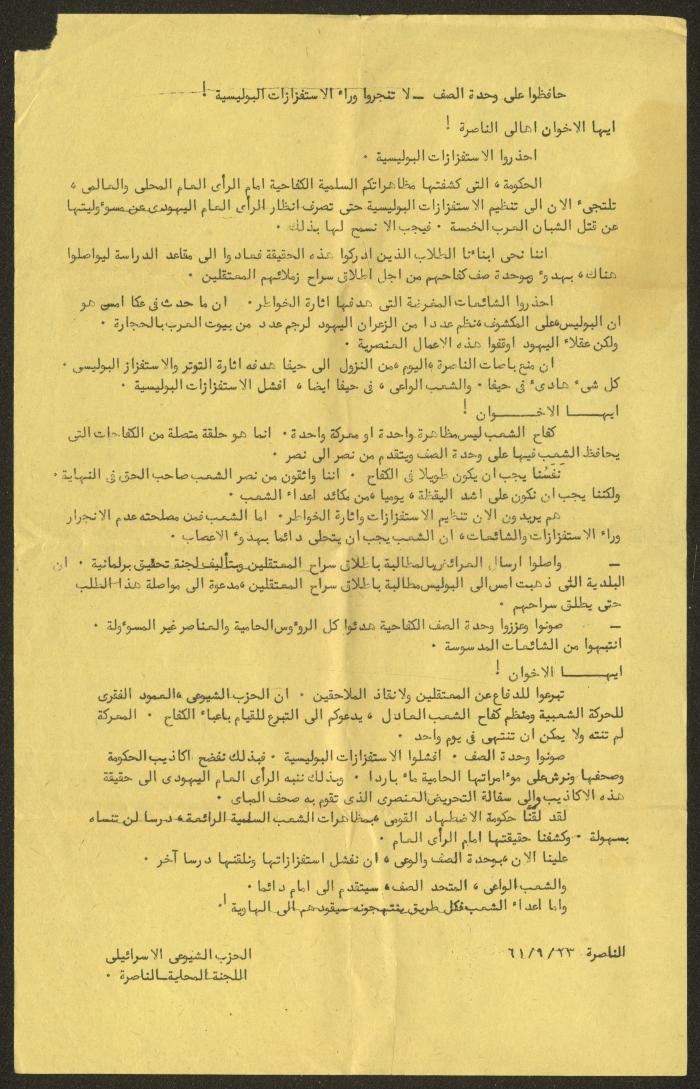 حافظوا على وحدة الصف ــ لا تنجروا وراء الاستفزازات البوليسية !
ايها الاخوان اهالى الناصرة !
احذروا الاستفزازات البوليسية .
الحكومة ، التى كشفتها مظاهراتكم السلمية الكفاحية امام الرأى العام المحلى والعالمى ،
تلتجىء الان الى تنظيم الاستفزازات البوليسية حتى تصرف انظار الرأى العام اليهودى عن مسؤوليتها
عن قتل الشبان العرب الخمسة . فيجب الا نسمح لها بذلك .
اننا نحى ابناءنا الطلاب الذين ادركوا هذه الحقيقة فعادوا الى مقاعد الدراسة ليواصلوا
هناك ، بهدوء وبوحدة صف كفاحهم من اجل اطلاق سراح زملائهم المعتقلين .
احذروا الشائعات المغرضة التى هدفها اثارة الخواطر . ان ما حدث فى عكا امس هو
ان البوليس ، على المكشوف ، نظم عددا من الزعران اليهود لرجم عدد من بيوت العرب بالحجارة .
ولكن عقلاء اليهود اوقفوا هذه الاعمال العنصرية .
ان منع باصات الناصرة ، اليوم ، من النزول الى حيفا هدفه اثارة التوتر والاستفزاز البوليسى .
كل شىء هادىء فى حيفا . والشعب الواعى ، فى حيفا ايضا ، افشل الاستفزازات البوليسية .
ايهـــا الاخـــوان !
كفاح الشعب ليس مظاهرة واحدة او معركة واحدة . انما هو حلقة متصلة من الكفاحات التى
يحافظ الشعب فيها على وحدة الصف ويتقدم من نصر الى نصر .
نفَسُنا يجب ان يكون طويلا فى الكفاح . اننا واثقون من نصر الشعب صاحب الحق فى النهاية .
ولكننا يجب ان نكون على اشد اليقظة ، يوميا ، من مكائد اعداء الشعب .
هم يريدون الان تنظيم الاستفزازات واثارة الخواطر . اما الشعب فمن مصلحته عدم الانجرار
وراء الاستفزازات والشائعات ، ان الشعب يجب ان يتحلى دائما بهدوء الاعصاب .
ــ واصلوا ارسال العرائض بالمطالبة باطلاق سراح المعتقلين وبتأليف لجنة تحقيق برلمانية . ان
البلدية التى ذهبت امس الى البوليس مطالبة باطلاق سراح المعتقلين ، مدعوة الى مواصلة هذا الطلب
حتى يطلق سراحهم .
ــ صونوا وعززوا وحدة الصف الكفاحية هدئوا كل الرؤوس الحامية والعناصر غير المسؤولة .
انتبهوا من الشائعات المدسوسة .
ايهـــا الاخوان !
تبرعوا للدفاع عن المعتقلين ولانقاذ الملاحقين . ان الحزب الشيوعى ، العمود الفقرى
للحركة الشعبية ومنظم كفاح الشعب العادل ، يدعوكم الى التبرع للقيام باعباء الكفاح . المعركة
لم تنته ولا يمكن ان تنتهى فى يوم واحد .
صونوا وحدة الصف . افشلوا الاستفزازات البوليسية . فبذلك نفضح اكاذيب الحكومة
وصحفها ونرش على مؤامراتها الحامية ماء باردا . وبذلك ننبه الرأى العام اليهودى الى حقيقة
هذه الاكاذيب والى سفالة التحريض العنصرى الذى تقوم به صحف المباى .
لقد لقَّنا حكومة الاضطهاد القومى ، بمظاهرات الشعب السلمية الرائعة ، درسا لن تنساه
بسهولة . وكشفنا حقيقتها امام الرأى العام .
علينا الان ، بوحدة الصف والوعى ، ان نفشل استفزازاتها ونلقنها درسا آخر .
والشعب الواعى ، المتحد الصف ، سيتقدم الى امام دائما .
واما اعداء الشعب فكل طريق ينتهجونه سيقودهم الى الهاوية !
الناصرة ٦١/٩/٢٣
الحزب الشيوعى الاسرائيلى
اللجنة المحلية ــ الناصرة .